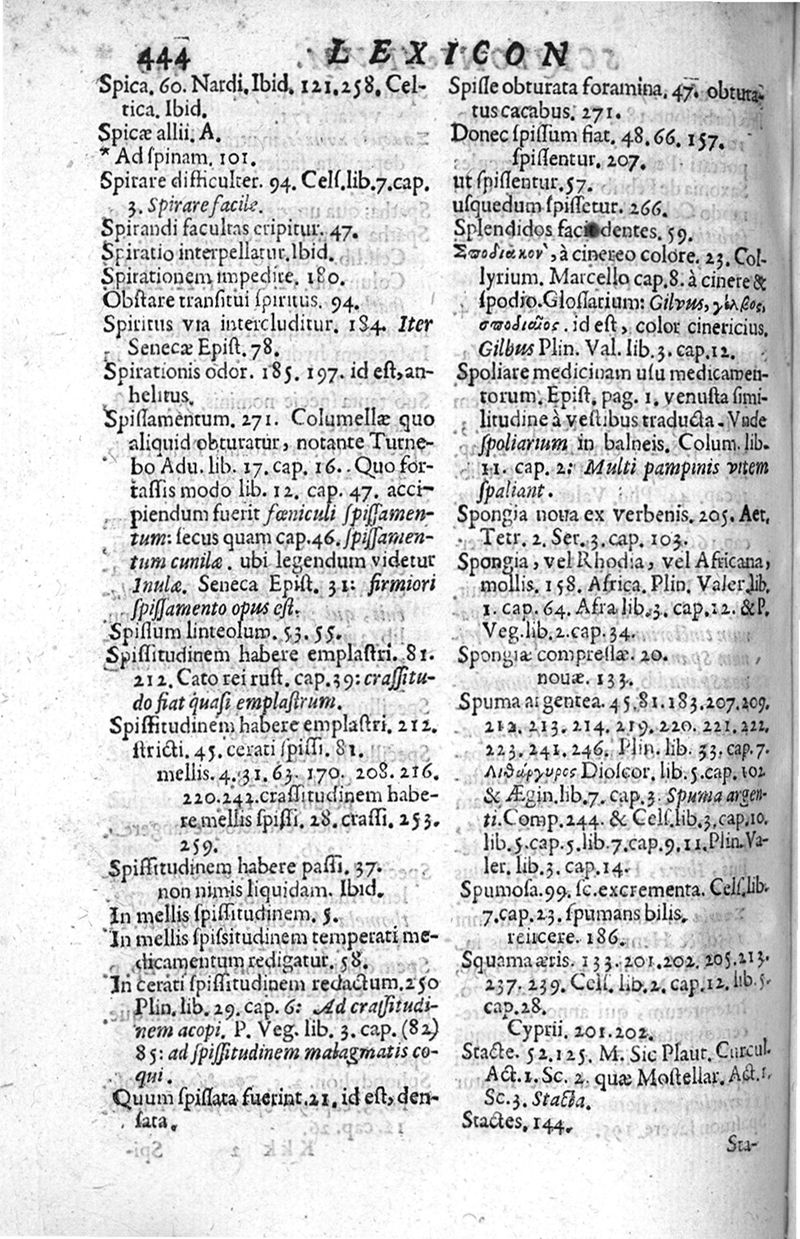 444 LEXICON
Spica. 60. Nardi. Ibid. 121. 258. Cel-
tica. Ibid.
Spicæ allii. A.
* Ad ſpinam. 101.
Spirare difficulter. 94. Celſ. lib. 7. cap.
3. Spirare facile.
Spirandi facultas eripitur. 47.
Spiratio interpellatur. Ibid.
Spirationem impedire. 180.
Obſtare tranſitui ſpiritus. 94.
Spiritus via intercluditur. 184. Iter
Senecæ Epiſt. 78.
Spirationis odor. 185. 197. id eſt, an-
helitus.
Spiſſamentum. 271. Columellæ quo
aliquid obturatur, notante Turne-
bo Adu. lib. 17. cap. 16. Quo for-
taſſis modo lib. 12. cap. 47. acci-
piendum fuerit fœniculi ſpiſſamen-
tum: ſecus quam cap. 46. ſpiſſamen-
tum cunilæ. ubi legendum videtur
Inulæ. Seneca Epiſt. 31: firmiori
ſpiſſamento opus eſt.
Spiſſum linteolum. 53. 55.
Spiſſitudinem habere emplaſtri. 81.
212. Cato rei ruſt. cap. 39: craſſitu-
do fiat quaſi emplaſtrum.
Spiſſitudinem habere emplaſtri. 212.
ſtricti. 45. cerati ſpiſſi. 81.
mellis. 4. 31. 63. 170. 208. 216.
220. 242. craſſitudinem habe-
re mellis ſpiſſi. 28. craſſi. 253.
259.
Spiſſitudinem habere paſſi. 37.
non nimis liquidam. Ibid.
In mellis ſpiſſitudinem. 5.
In mellis ſpiſsitudinem temperati me-
dicamentum redigatur. 58.
In cerati ſpiſſitudinem redactum. 250
Plin. lib. 29. cap. 6: Ad craſſitudi-
nem acopi. P. Veg. lib. 3. cap. (82)
85: ad ſpiſſitudinem malagmatis co-
qui.
Quum ſpiſſata fuerint. 21. id eſt, den-
ſata.
Spiſſe obturata foramina. 47. obtura-
tus cacabus. 271.
Donec ſpiſſum fiat. 48. 66. 157.
ſpiſſentur. 207.
ut ſpiſſentur. 57.
uſquedum ſpiſſetur. 266.
Splendidos dentes. 59.
Σποδιακὸν, à cinereo colore. 23. Col-
lyrium. Marcello cap. 8. à cinere &
ſpodio. Gloſſarium: Gilvus, γίλβος,
id eſt, color cinericius.
Gilbus Plin. Val. lib. 3. cap. 12.
Spoliare medicinam uſu medicamen-
torum. Epiſt. pag. 1. venuſta ſimi-
litudine à veſtibus traducta. Vnde
ſpoliarium in balneis. Colum. lib.
11. cap. 2: Multi pampinis vitem
ſpaliant.
Spongia noua ex verbenis. 205. Aet.
Tetr. 2. Ser. 3. cap. 103.
Spongia, vel Rhodia, vel Africana,
mollis. 158. Africa. Plin. Valer. lib.
1. cap. 64. Afra lib. 3. cap. 12. & P.
Veg. lib. 2. cap. 34.
Spongiæ compreſſæ. 20.
nouæ. 133.
Spuma argentea. 45. 81. 183. 207. 209.
212. 213. 214. 219. 220. 221. 222.
223. 241. 246. Plin. lib. 33. cap. 7.
Λιθάργυρος Dioſcor. lib. 5. cap. 102
& Ægin. lib. 7. cap. 3. Spuma argen-
ti. Comp. 244. & Celſ. lib. 3. cap. 10.
lib. 5. cap. 5. lib. 7. cap. 9. 11. Plin. Va-
ler. lib. 3. cap. 14.
Spumoſa. 99. ſc. excrementa. Celſ. lib.
7. cap. 23. ſpumans bilis.
reiicere. 186.
Squama æris. 133. 201. 202. 205. 213.
237. 239. Celſ. lib. 2. cap. 12. lib. 5.
cap. 28.
Cyprii. 201. 202.
Stacte. 52. 125. M. Sic Plaut. Curcul.
Act. 1. Sc. 2. quæ Moſtellar. Act. 1.
Sc. 3. Stacta.
Stactes. 144.
Sta-